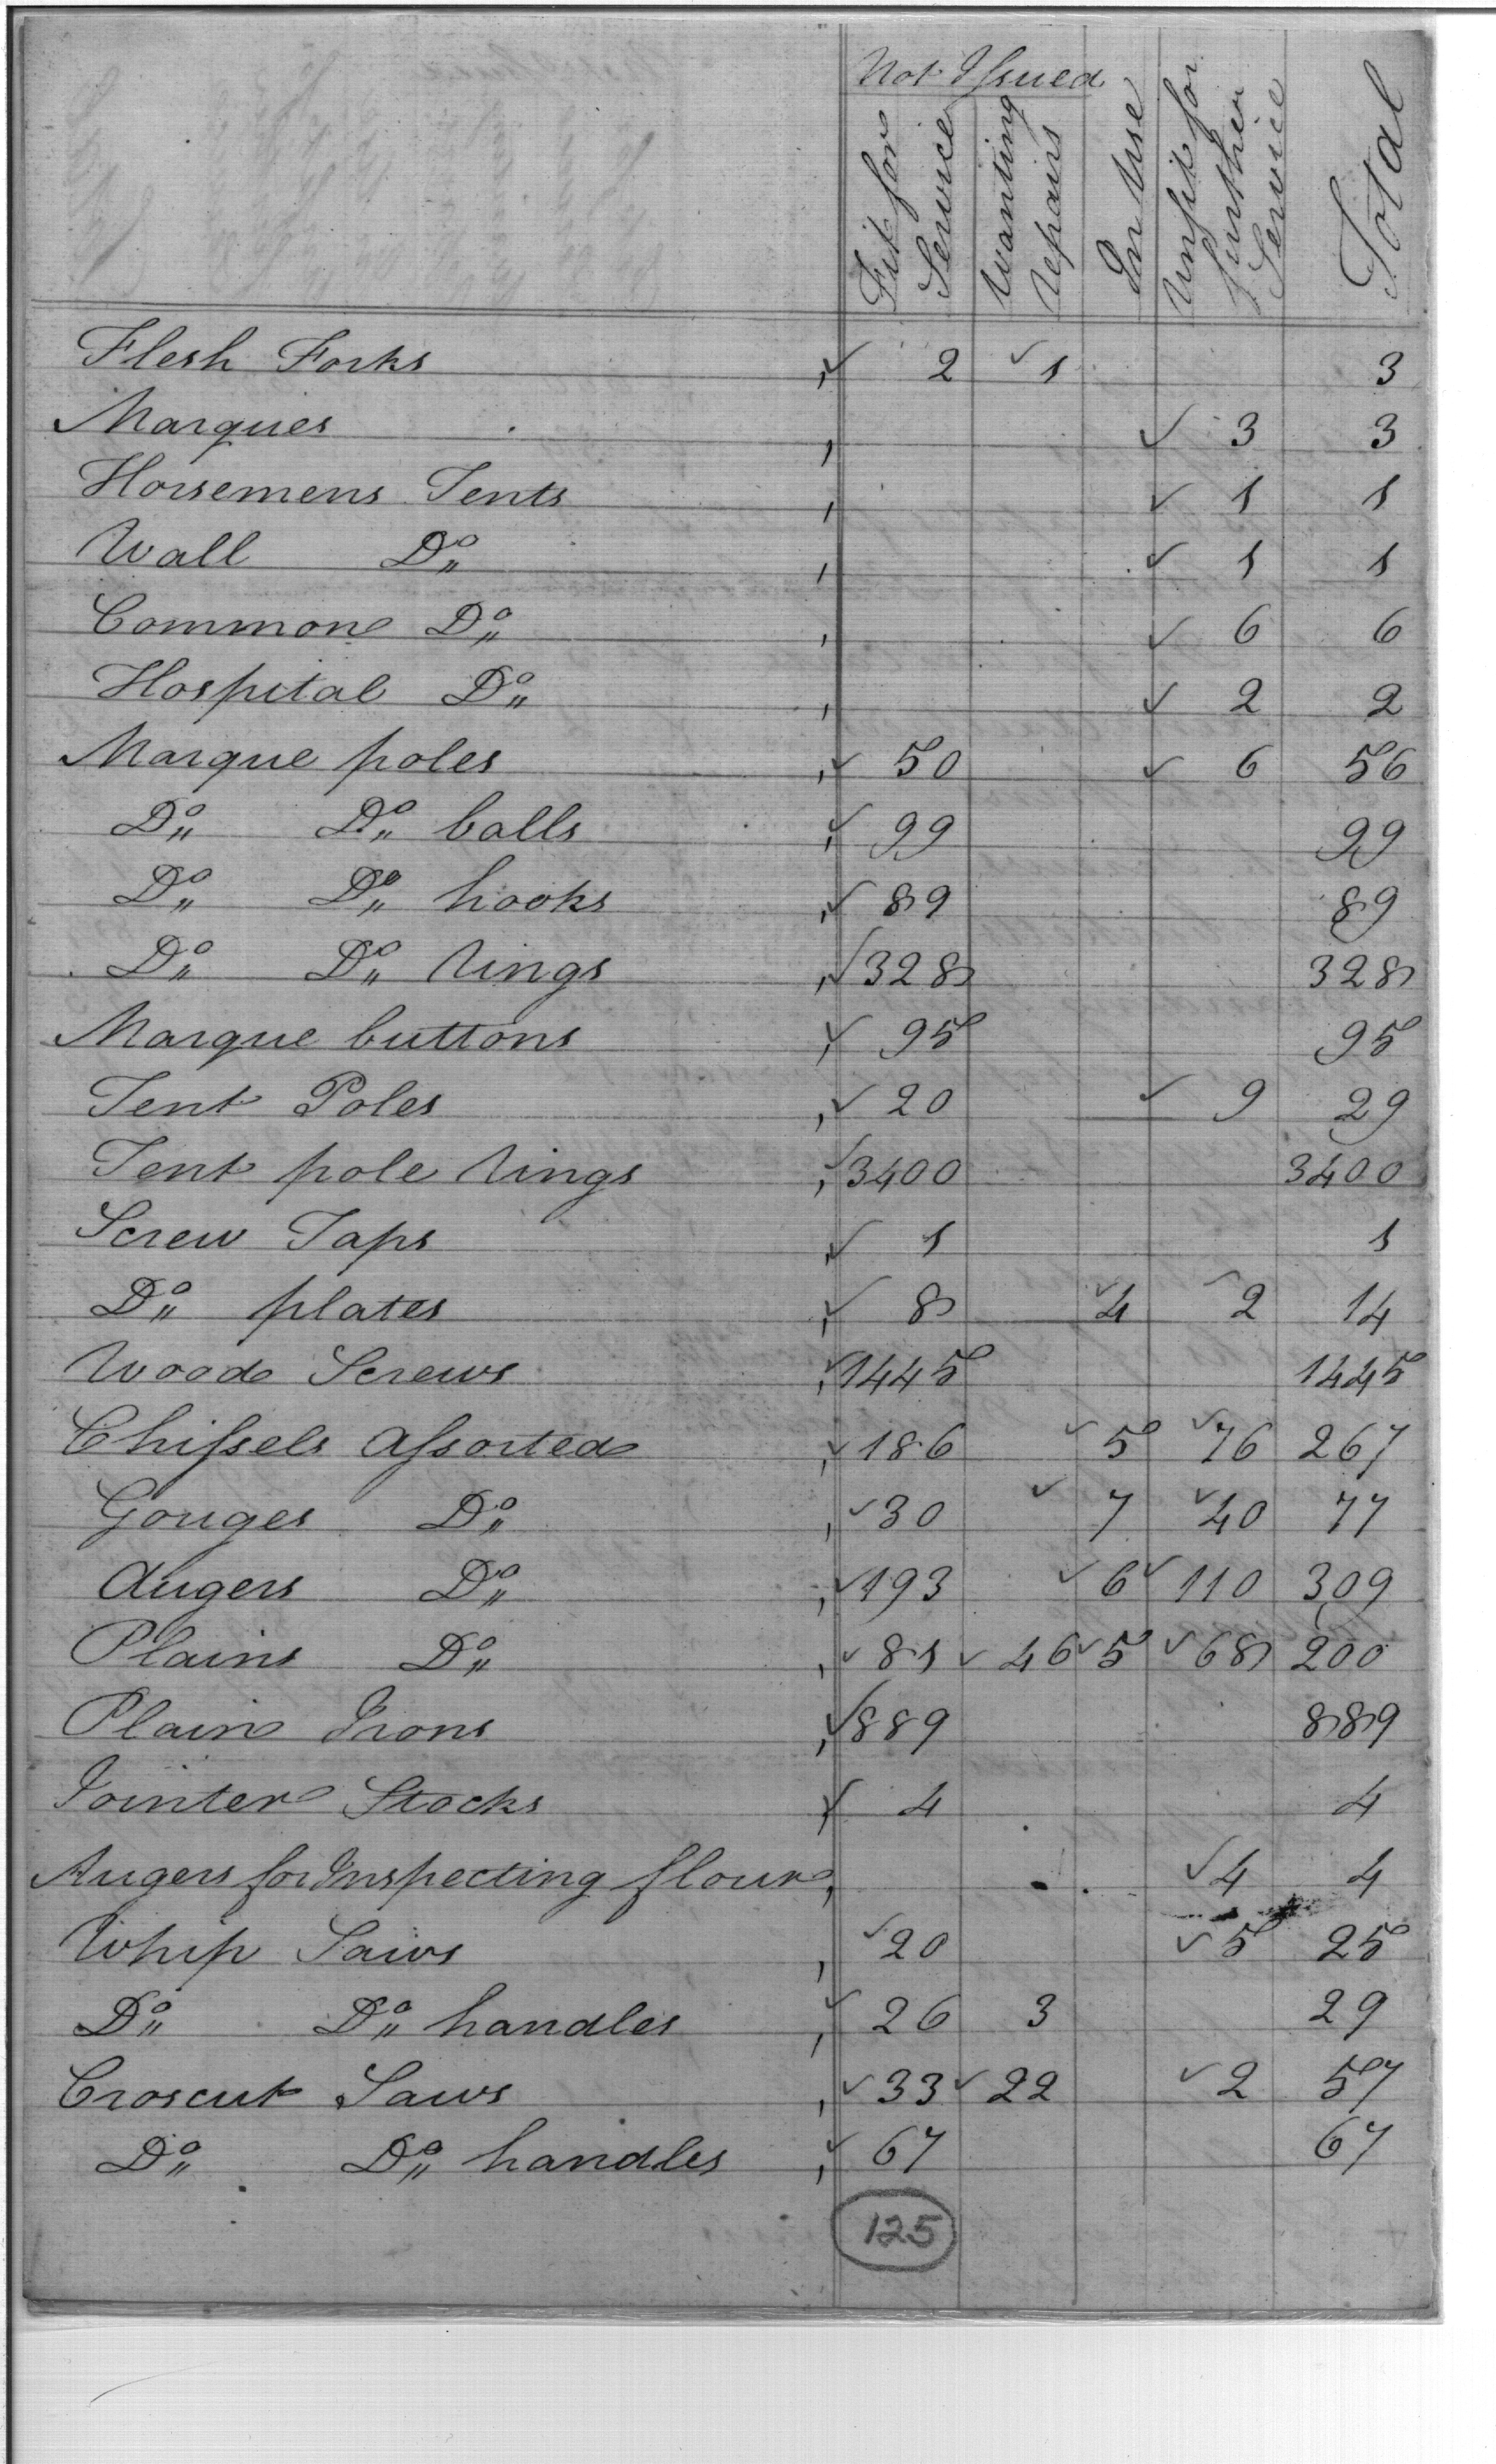 Not Issued
Fit for Service
Wanting repairs
In Use
Unfit for further Service
Total
Flesh Forks , ✓ 2 ✓ 1 3
Marques , ✓ 3 3
Horsemens Tents , ✓ 1 1
Wall Do , ✓ 1 1
Common Do , ✓ 6 6
Hospital Do , ✓ 2 2
Marque poles , ✓ 50 ✓ 6 56
Do Do balls , ✓ 99 99
Do Do hooks , ✓ 89 89
Do Do rings , ✓ 328 328
Marque buttons , ✓ 95 95
Tent Poles , ✓ 20 ✓ 9 29
Tent pole rings , ✓ 3400 3400
Screw Taps , ✓ 1 1
Do plates , ✓ 8 ✓ 4 ✓ 2 14
Wood Screws , ✓ 1445 1445
Chissels Assorted , ✓ 186 ✓ 5 ✓ 76 267
Gouges Do , ✓ 30 ✓ 7 ✓ 40 77
Augers Do , ✓ 193 ✓ 6 ✓ 110 309
Plains Do , ✓ 81 ✓ 46 ✓ 5 ✓ 68 200
Plain Irons , ✓ 889 889
Jointer Stocks , ✓ 4 4
Augers for Inspecting flour , ✓ 4 4
Whip Saws , ✓ 20 ✓ 5 25
Do Do handles , ✓ 26 3 29
Croscut Saws , ✓ 33 ✓ 22 ✓ 2 57
Do Do handles , ✓ 67 67
125